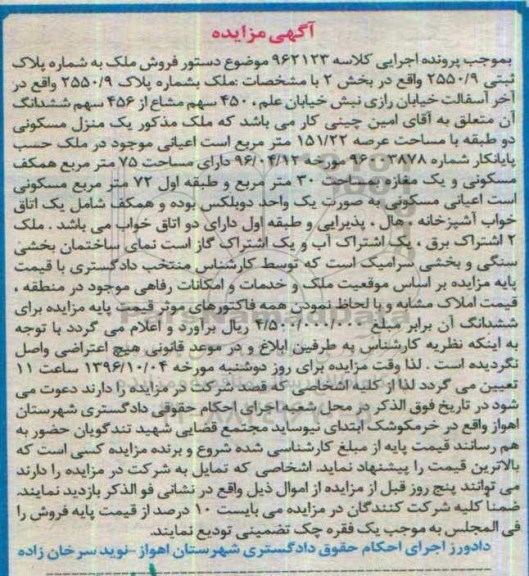 آگهی مزایده
بموجب پرونده اجرایی کلاسه ۹۶۲۱۲۳ موضوع دستور فروش ملک به شماره پلاک
ثبتی ۲۵۵۰/۹ واقع در بخش ۲ با مشخصات :ملک بشماره پلاک ۲۵۵۰/۹ واقع در
آخر آسفالت خیابان رازی نبش خیابان علم ، ۴۵۰ سهم مشاع از ۴۵۶ سهم ششدانگ
آن متعلق به آقای امین چینی کار می باشد که ملک مذکور یک منزل مسکونی
دو طبقه با مساحت عرصه ۱۵۱/۲۲ متر مربع است اعیانی موجود در ملک حسب
پایانکار شماره ۹۶۰۰۳۸۷۸ مورخه ۹۶/۰۴/۱۲ دارای مساحت ۷۵ متر مربع همکف
مسکونی و یک مغازه بمساحت ۳۰ متر مربع و طبقه اول ۷۲ متر مربع مسکونی
است اعیانی مسکونی به صورت یک واحد دوبلکس بوده و همکف شامل یک اتاق
خواب آشپزخانه ، هال ، پذیرایی و طبقه اول دارای دو اتاق خواب می باشد . ملک
۲ اشتراک برق ، یک اشتراک آب و یک اشتراک گاز است نمای ساختمان بخشی
سنگی و بخشی سرامیک است که توسط کارشناس منتخب دادگستری با قیمت
پایه مزایده بر اساس موقعیت ملک و خدمات و امکانات رفاهی موجود در منطقه ،
قیمت املاک مشابه و با لحاظ نمودن همه فاکتورهای موثر قیمت پایه مزایده برای
ششدانگ آن برابر مبلغ ۴/۵۰۰/۰۰۰/۰۰۰ ریال برآورد و اعلام می گردد با توجه
به اینکه نظریه کارشناس به طرفین ابلاغ و در موعد قانونی هیچ اعتراضی واصل
نگردیده است . لذا وقت مزایده برای روز دوشنبه مورخه ۱۳۹۶/۱۰/۰۴ ساعت ۱۱
تعیین می گردد لذا از کلیه اشخاصی که قصد شرکت در مزایده را دارند دعوت می
شود در تاریخ فوق الذکر در محل شعبه اجرای احکام حقوقی دادگستری شهرستان
اهواز واقع در خرمکوشک ابتدای نیوساید مجتمع قضایی شهید تندگویان حضور به
هم رسانند قیمت پایه از مبلغ کارشناسی شده شروع و برنده مزایده کسی است که
بالاترین قیمت را پیشنهاد نماید. اشخاصی که تمایل به شرکت در مزایده را دارند
می توانند پنج روز قبل از مزایده از اموال ذیل واقع در نشانی فو الذکر بازدید نمایند.
ضمناً کلیه شرکت کنندگان در مزایده می بایست ۱۰ درصد از قیمت پایه فروش را
فی المجلس به موجب یک فقره چک تضمینی تودیع نمایند.
دادورز اجرای احکام حقوق دادگستری شهرستان اهواز -نوید سرخان زاده